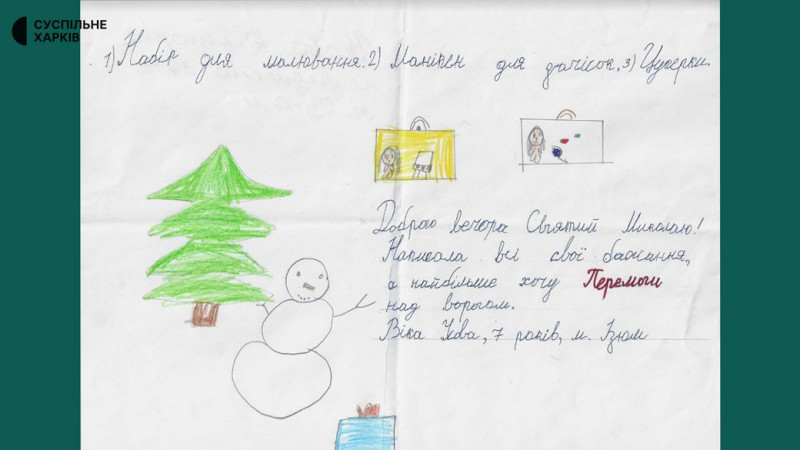 СУСПІЛЬНЕ
ХАРКІВ
1) Набір для малювання. 2) Манікен для зачісок. 3) Цукерки.
Доброго вечора Святий Миколаю!
Написала всі свої бажання,
а найбільше хочу Перемоги
над ворогом.
Віка, 7 років, м. Ізюм